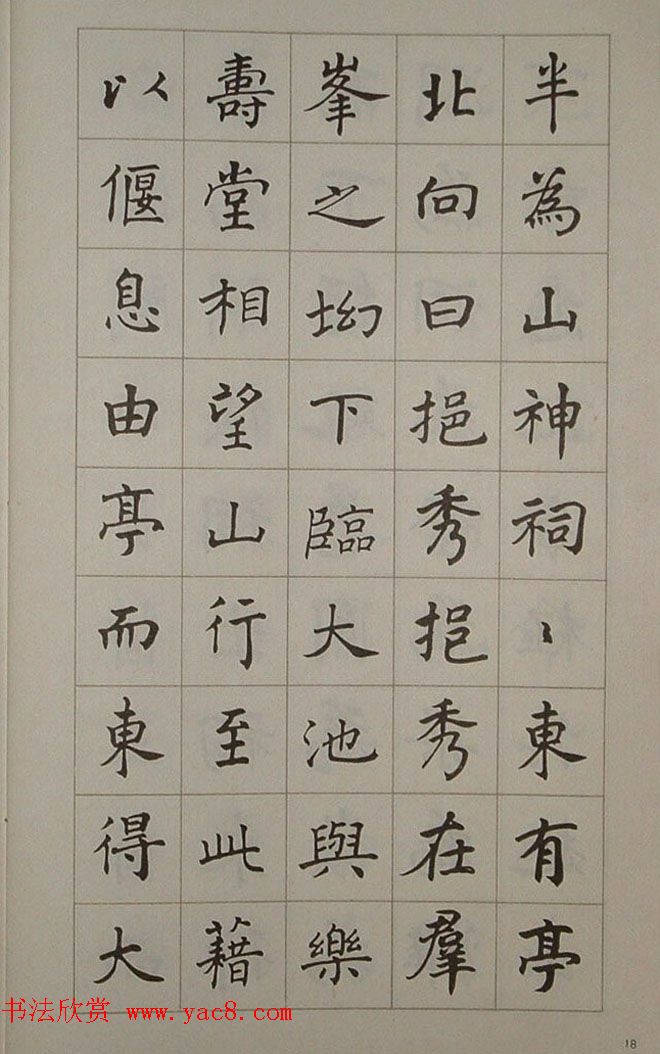 半為山神祠〻東有亭
北向曰挹秀挹秀在羣
峯之坳下臨大池與樂
壽堂相望山行至此藉
以偃息由亭而東得大
书法欣赏 www.yac8.com
18